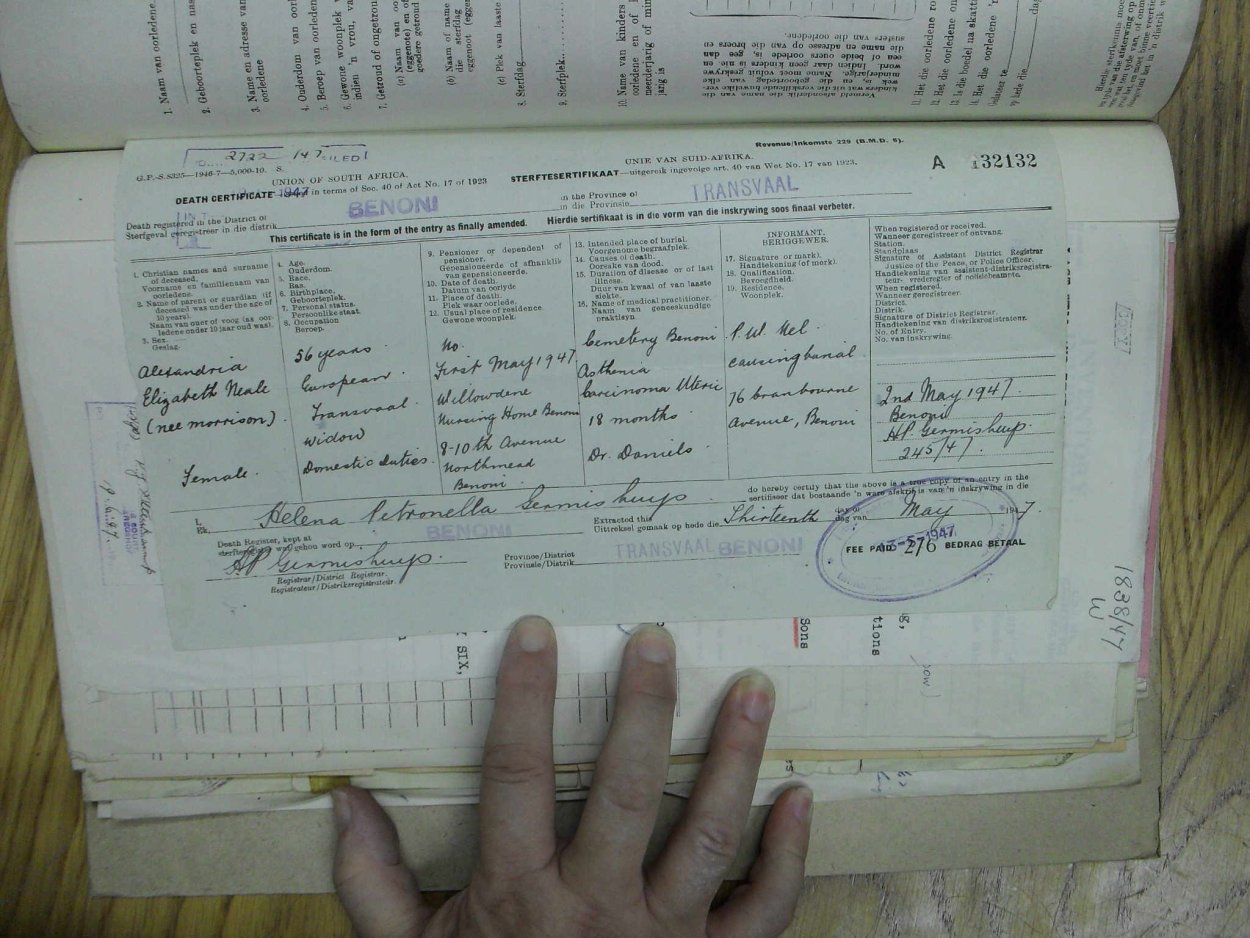 1. Naam van oorledene.
2. Geboorteplek en nas
3. Naam en adresse van
oorledene
4. Ouderdom van oorl
5. Beroep van oorledene
6. Gewone woonplek v
indien 'n vrou, va
7. Getroud of ongetrou
(a) Naam van oo
(eggenote) en of
goedere getroud
(b) Naam of name
die sterfdag
eggenoot (egge
(c) Plek van laaste
8. Sterfdag
9. Sterfplek
10. Name van kinders
oorledene en of
meerderjarig of min
jarig is
11. Het die oorledene ro
12. Het die oorledene on
13. Is die boedel na skatti
14. Het die oorledene 'n
Gedateer te
2722 147 FILED
G.P.-S.8325—1946-7—5,000-10. S.
UNION OF SOUTH AFRICA.
DEATH CERTIFICATE in terms of Sec. 40 of Act No. 17 of 1923
1947
Revenue/Inkomste 229 (B.M.D. 6).
UNIE VAN SUID-AFRIKA.
STERFTESERTIFIKAAT—uitgereik ingevolge art. 40 van Wet No. 17 van 1923.
A 132132
Death registered in the District of
Sterfgeval geregistreer in die distrik
BENONI
in the Province of
in die Provinsie
TRANSVAAL
This certificate is in the form of the entry as finally amended. Hierdie sertifikaat is in die vorm van die inskrywing soos finaal verbeter.
1. Christian names and surname
of deceased.
Voorname en familienaam van
oorledene.
2. Name of parent or guardian (if
deceased was under the age of
10 years).
Naam van ouer of voog (as oor-
ledene onder 10 jaar oud was).
3. Sex.
Geslag.
Alexandria
Elizabeth Neale
(nee Morrison).
Female.
4. Age.
Ouderdom.
5. Race.
Ras.
6. Birthplace.
Geboorteplek.
7. Personal status.
Persoonlike staat.
8. Occupation
Beroep.
56 years.
European.
Transvaal.
Widow
Domestic duties.
9. Pensioner or dependent of
pensioner.
Gepensioneerde of afhanklik
van gepensioneerde.
10. Date of death.
Datum van oorlyde
11. Place of death.
Plek waar oorlede.
12. Usual place of residence.
Gewone woonplek.
No.
First May 1947
Willowdene
Nursing Home Benoni
8-10th Avenue
Northmead
Benoni.
13. Intended place of burial.
Voorgenome begraafplek.
14. Causes of death.
Oorsake van dood.
15. Duration of disease or of last
illness.
Duur van kwaal of van laaste
siekte.
16. Name of medical practitioner.
Naam van geneeskundige
praktisyn
Cemetery Benoni
Asthenia
Carcinoma Uteric
18 months
Dr. Daniels.
INFORMANT.
BERIGGEWER.
17. Signature or mark).
Handtekening (of merk).
18. Qualification.
Bevoegdheid.
19. Residence.
Woonplek.
P. W. Nel.
causing burial
76 Cranbourne
Avenue, Benoni
When registered or received.
Wanneer geregistreer of ontvang.
Station.
Standplaas
Signature of Assistant District Registrar
Justice of the Peace, or Police Officer.
Handtekening van assistent-distriksregistra-
teur- vrederegter of polisiebeampte.
When registered.
Wanneer geregistreer.
District.
Distrik.
Signature of District Registrar.
Handtekening van distriksregistrateur.
No. of Entry.
No. van Inskrywing.
2nd May 1947.
Benoni
HP. Germishuys.
245/47.
I,
Ek,
Helena Petronella Germishuys
do hereby certify that the above is a true copy of an entry in the
sertifiseer dat bostaande 'n ware afskrif is van 'n inskrywing in die
Death Register, kept at
sterfteregister wat gehou word op
BENONI
Extracted this
Uittreksel gemaak op hede die
Thirteenth
day of
dag van
May
1947
HP Germishuys.
Registrar/District Registrar.
Registrateur/Distriksregistrateur.
Province/District
Provinsie/Distrik
TRANSVAAL BENONI
13-5-1947
FEE PAID 276 BEDRAG BETAAL
1838/47
SIX,
Sons
tions